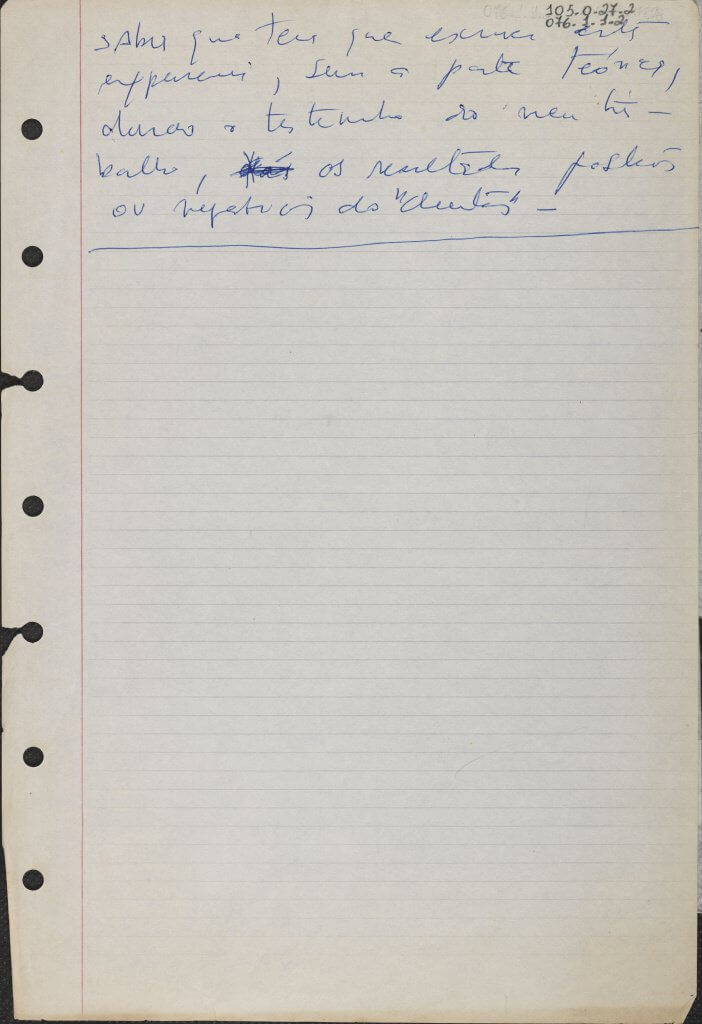 105.0.27.2
076.1.1.2
saber que tem que escrever esta
experiencia, sem a parte teórica,
dando o testemunho do meu tra-
balho, os resultados positivos
ou negativos do "clientes" -